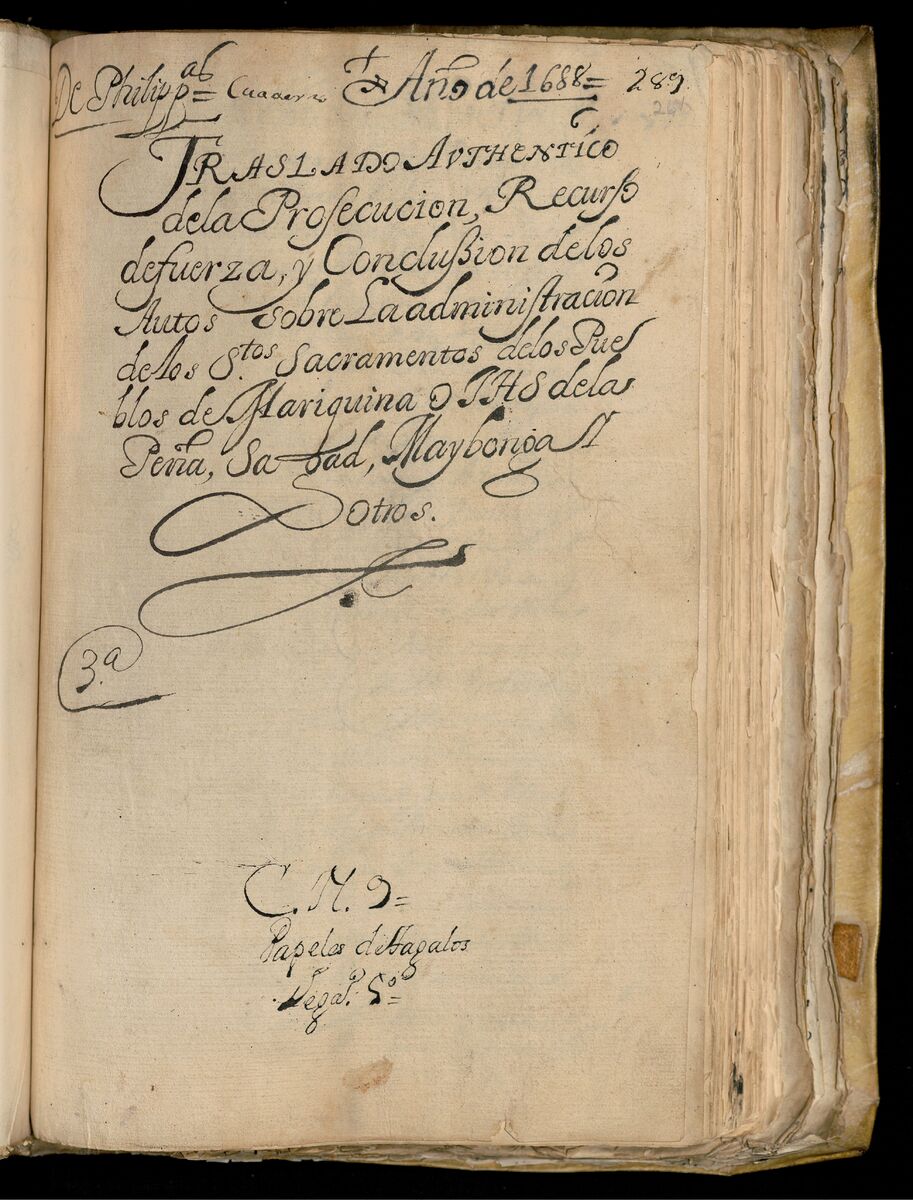 De Philipp.as = Cuaderno + Año de 1688 = 289.
TRASLADO AVTHENTICO
dela Prosecucion, Recurso
de fuerza, y Conclussion delos
Autos sobre La administracion
de los S.tos Sacramentos delos Pue
blos de Mariquina o IHS dela
Peña, Sabad, Maybonga y
otros.
3.a
C. N. 9=
Papeles de Tagalos
Lega.o 5.o=